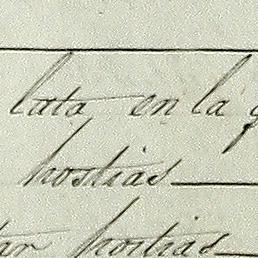 lata en la
hostias
hostias